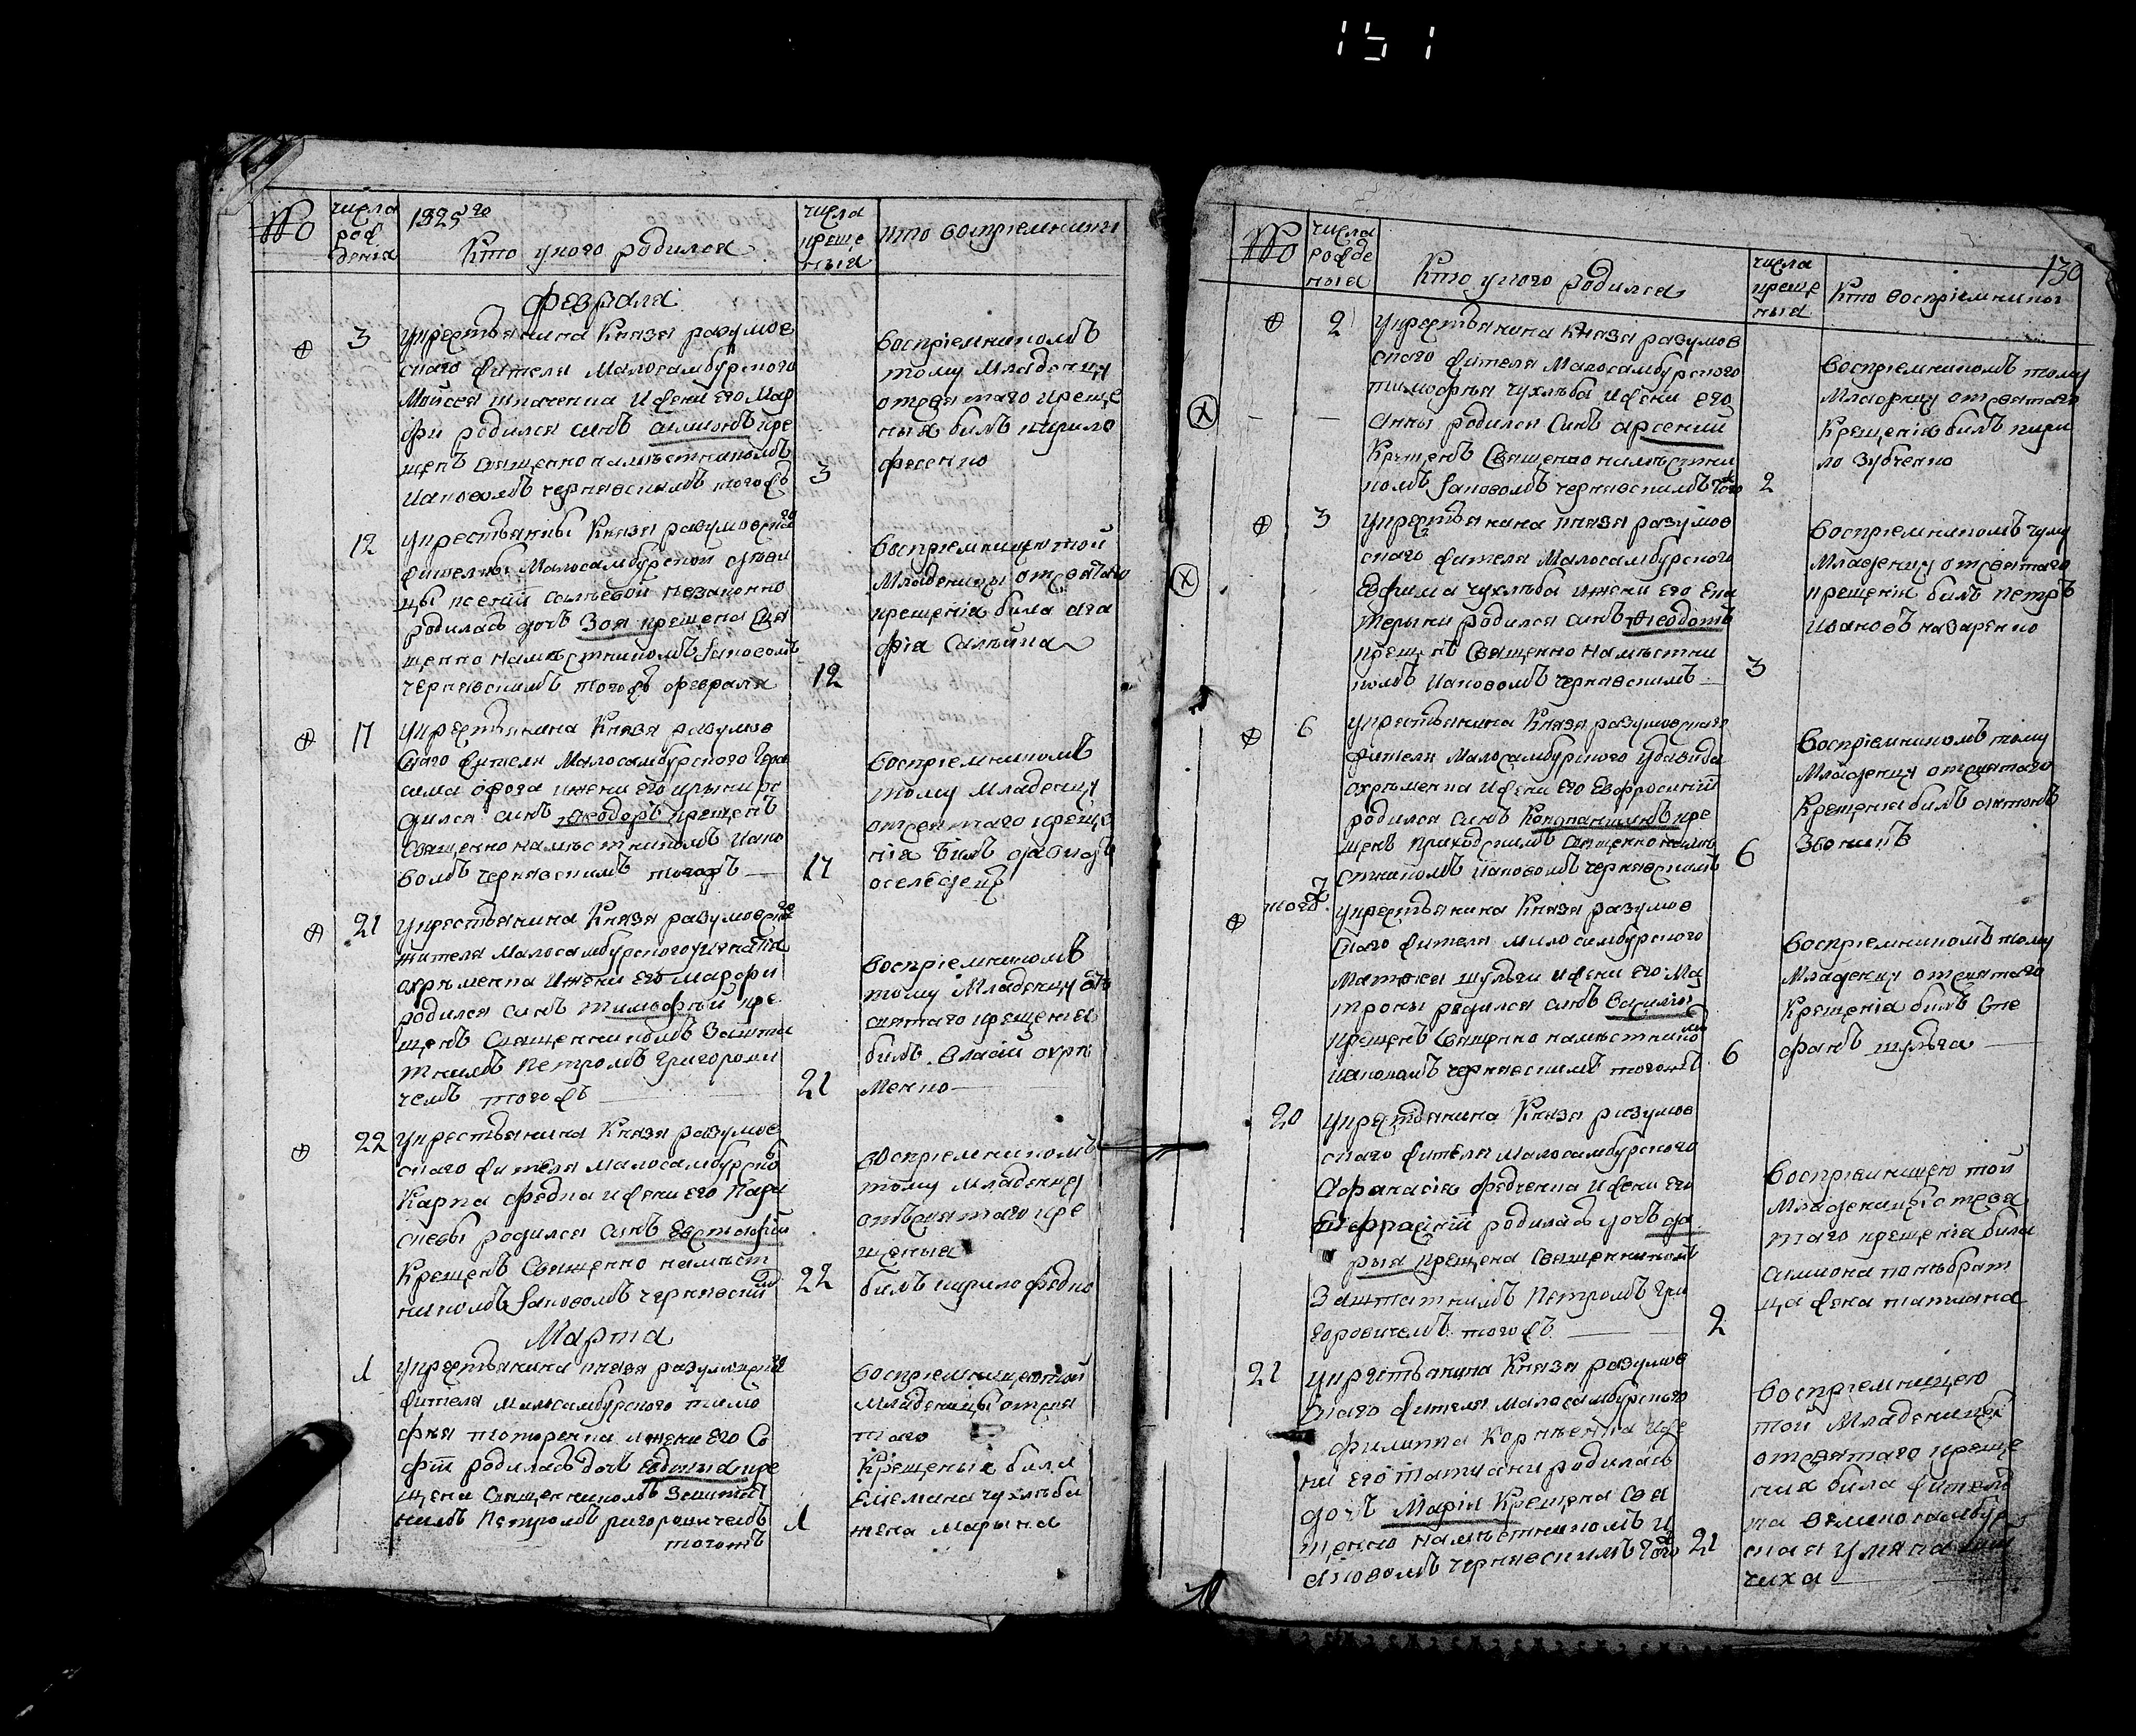 151
№
числа рож дения
1825го
Кто у кого родился
числа креще ныя
кто восприемники
Февраля
3
укрестьянина Князя разумов
скаго жителя Малосамбурского
Мойсея ткаченка ижени его Мар
фи родился синъ симионъ кре
щенъ священно намѣстникомъ
Иаковомъ чернявскимъ тогожъ
3
восприемникомъ
тому Младенцу
отсвятаго креще
ныя билъ кирило
фесенко
12
укрестьянки Князя разумовскаго
жителки Малосамбурской
родилась дочъ Зоя крещена свя
щенно намѣстникомъ Iаковомъ
чернявскимъ тогожъ февраля
12
восприемницею той
Младеницы отсвятаго
крещенія била ага
фія
17
укрестьянина Князя разумов
скаго жителя Малосамбурского Гера
сима ижени его ирыни ро
дился синъ Ѳеодоръ крещенъ
Священно намѣстникомъ Иако
вомъ чернявскимъ тогожъ
17
восприемникомъ
тому Младенцу
отсвятаго креще
нія билъ давидъ
оселедецъ
21
укрестьянина Князя разумовскаго
жителя Малосамбурского игнатія
охрѣменка ижени его марфи
родился синъ тимофѣй кре
щенъ Священникомъ Зашта
тнимъ Петромъ Григорови
чемъ тогожъ
21
восприемникомъ
тому Младенцу отъ
святаго крещенія
билъ Власій охрѣ
менко
22
укрестьянина Князя разумов
скаго жителя малосамбурского
Карпа федка ижени его Пара
скевы родился синъ Евстафій
Крещенъ Священно намѣст
никомъ Iаковомъ чернявским
22
восприемникомъ
тому младенцу
отъсвятаго кре
щеныя
билъ кирило федко
Марта
1
укрестьянина князя разумовскаго
жителя малосамбурского тимо
фея ижени его Со
фіи родилась дочъ Евдокія кре
щена Священникомъ Заштат
нимъ Петромъ григоровичемъ
тогожъ
1
восприемницею той
младеницы отсвя
таго
Крещеныя била
чухлѣба
жена Марына
130
№
числа рожде ныя
Кто у кого родился
числа креще ныя
Кто восприемники
2
укрестьянина Князя разумов
скаго жителя Малосамбурского
тимофѣя чухлѣба ижени его
Анны родился Синъ арсений
Крещенъ Священно намѣстни
комъ Iаковомъ чернявскимъ того
2
восприемникомъ тому
Младенцу отсвятаго
Крещенія билъ кири
ло Зубченко
3
укрестьянина князя разумов
скаго жителя Малосамбурского
Евфима чухлѣба ижени его Ека
терыни родился синъ Ѳеодотъ
крещенъ Священно намѣстни
комъ Иаковомъ чернявскимъ
3
восприемникомъ тому
Младенцу отсвятаго
крещенія билъ петръ
Ивановъ назаренко
6
укрестьянина Князя разумовскаго
жителя Малосамбурского удавида
охрѣменка ижени его Евфросиній
родился синъ Кондратъ кре
щенъ приходскимъ священно намѣ
стникомъ Иаковомъ чернявскимъ
6
восприемникомъ тому
Младенцу отсвятаго
Крещенія билъ антонъ
Звоникъ
тогож
укрестьянина Князя разумов
скаго жителя малосамбурского
Матвея шульги ижени его Ма
троны родился синъ Василій
крещенъ Священно намѣстником
Иаковомъ чернявскимъ тогожъ
6
восприемникомъ тому
Младенцу отсвятаго
Крещенія билъ Сте
фанъ шульга
20
укрестьянина Князя разумов
скаго жителя малосамбурского
Афанасія федченка ижени его
Евфрасиній родилась дочъ да
рыя крещена Священникомъ
Заштатнимъ Петромъ Гри
горовичемъ тогожъ
2
восприемницею той
Младеницы отсвя
таго крещенія била
симиона
жена татиана
21
укрестьянина Князя разумов
скаго жителя малосамбурского
филиппа Корнѣенка иже
ни его татиани родилась
дочъ Марія Крещена Свя
щенно намѣстникомъ И
аковомъ чернявскимъ того
21
восприемницею
той Младеницы
отсвятаго креще
ния била жителѣ
ка великосамбур
ская улияна
чиха